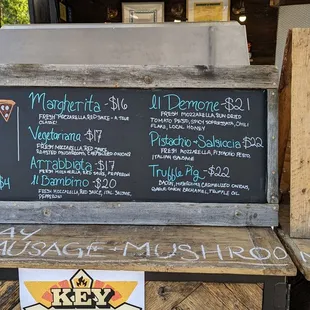 Margherita - $16
FRESH MOZZARELLA, RED SAUCE - A TRUE
CLASSIC!
Vegetariana $17
FRESH MOZZARELLA, RED SAUCE,
ROASTED MUSHROOMS, CARAMELIZED ONIONS
Arrabbiata $17
FRESH MOZZARELLA, RED SAUCE, PEPPERONI
Il Bambino $20
FRESH MOZZARELLA, RED SAUCE, ITAL. SAUSAGE,
PEPPERONI
$4
Il Demone - $21
FRESH MOZZARELLA, SUN DRIED
TOMATO PESTO, SPICY SOPPRESSATA, CHILI
FLAKE, LOCAL HONEY
Pistachio-Salsiccia $22
FRESH MOZZARELLA, PISTACHIO PESTO
ITALIAN SAUSAGE
Truffle Pig - $22
MUSHROOMS, CARAMELIZED ONION,
BECHAMEL, TRUFFLE OIL
AUSAGE - MUSHROOM
KEY